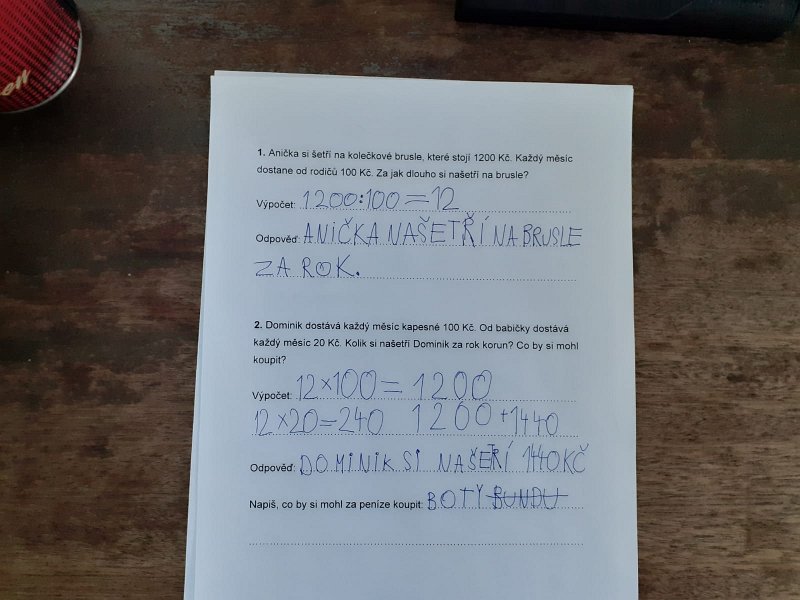 ell
1. Anička si šetří na kolečkové brusle, které stojí 1200 Kč. Každý měsíc
dostane od rodičů 100 Kč. Za jak dlouho si našetří na brusle?
Výpočet: 1200:100=12
Odpověď: ANIČKA NAŠETŘÍ NA BRUSLE
ZA ROK.
2. Dominik dostává každý měsíc kapesné 100 Kč. Od babičky dostává
každý měsíc 20 Kč. Kolik si našetří Dominik za rok korun? Co by si mohl
koupit?
Výpočet: 12×100=1200
12×20=240 1200+1440
Odpověď: DOMINIK SI NAŠEŘÍ 1440KČ
Napiš, co by si mohl za peníze koupit: BOTY BUNDU